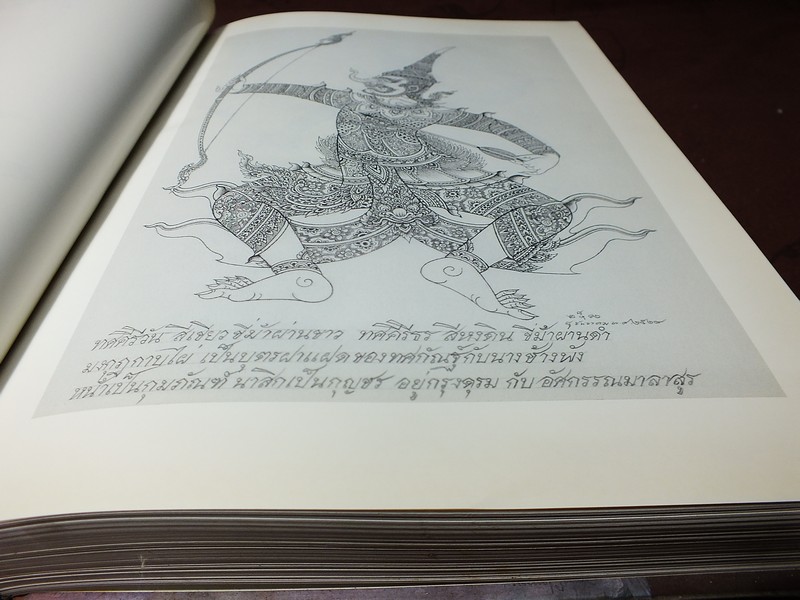 ทศคีรีวัน สีเขียว ขี่ม้าผ่านขาว ทศคีรีธร สีหงดิน ขี่ม้าผ่านดำ
มงกุฎกาบไผ่ เป็นบุตรฝาแฝดของทศกัณฐ์กับนางช้างพัง
หน้าเป็นกุมภัณฑ์ นาสิกเป็นกุญชร อยู่กรุงดุรม กับ อัศกรรณมาลาสูร